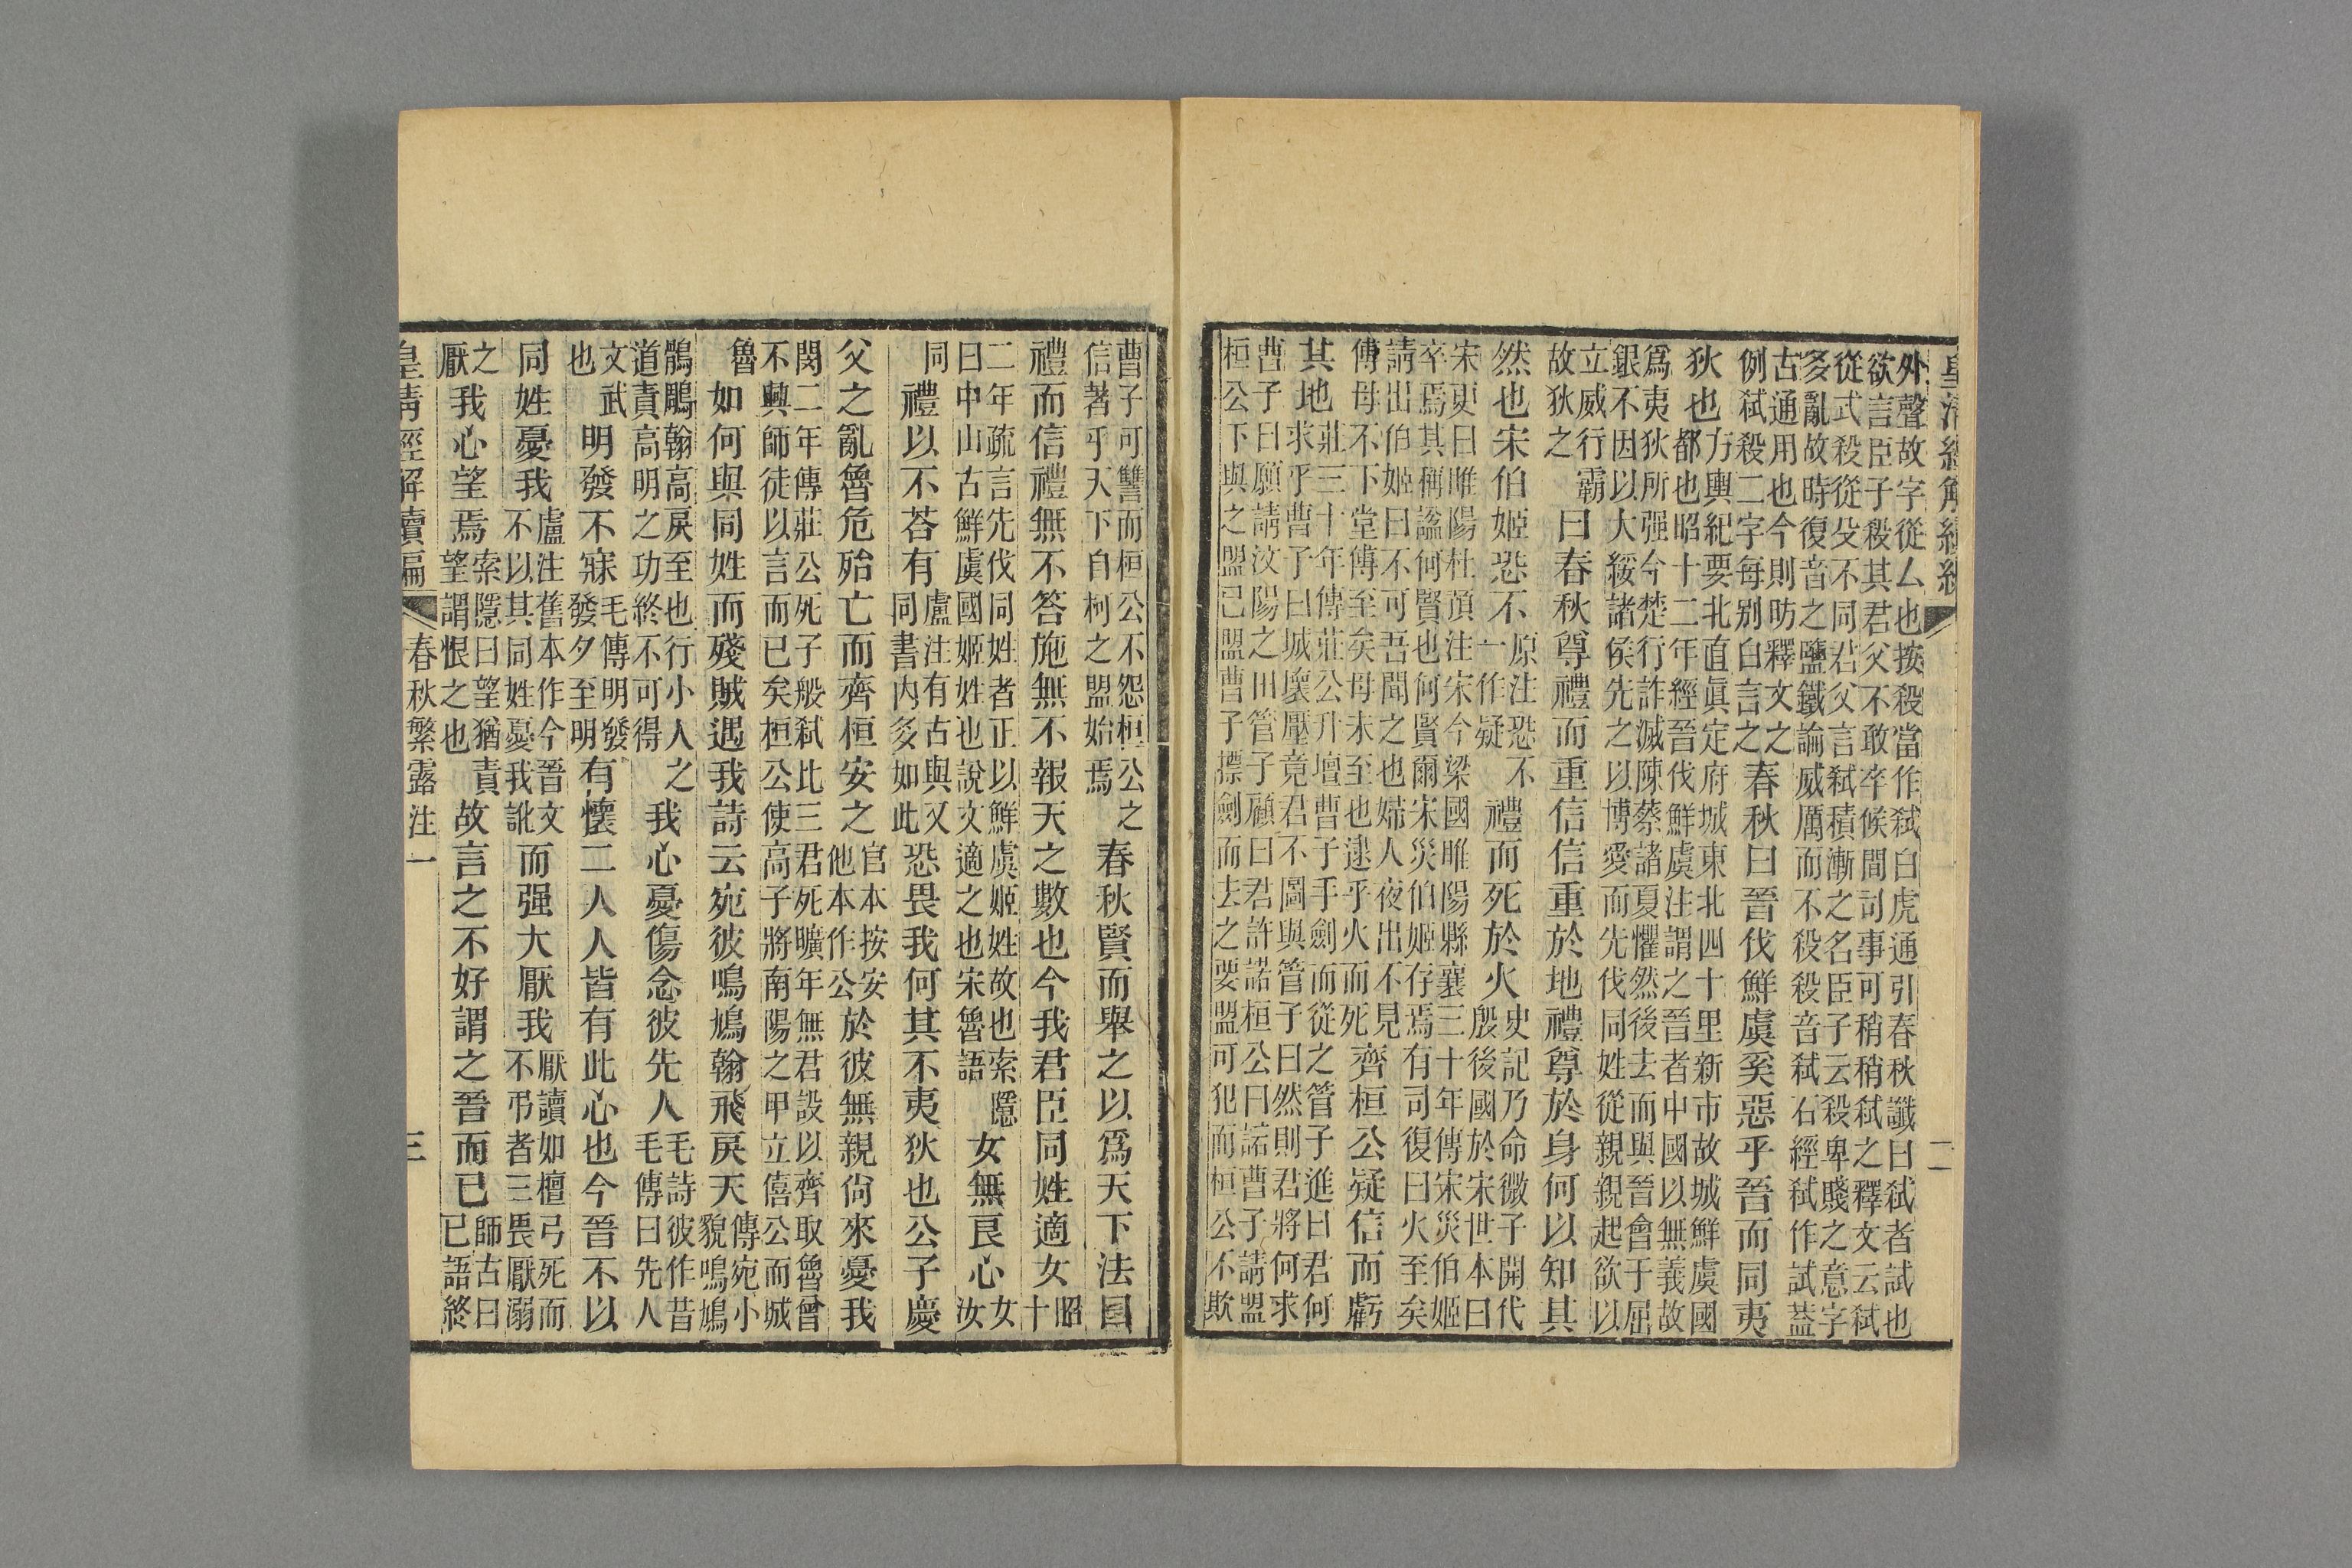 皇清經解續編
二
外聲故字從厶也按殺當作弒白虎通引春秋讖曰弒者試也
欲言臣子殺其君父不敢卒候間司事可稍稍弒之釋文云弒
從式殺從殳不同君父言弒積漸之名臣子云殺卑賤之意字
多亂故時復音之鹽鐵論威厲而不殺殺音弒石經弒作試蓋
古通用也今則昉釋文之
例弒殺二字每別白言之
春秋曰晉伐鮮虞奚惡乎晉而同夷
狄也
方輿紀要北直眞定府城東北四十里新市故城鮮虞國
都也昭十二年經晉伐鮮虞注謂之晉者中國以無義故
爲夷狄所强今楚行詐滅陳蔡諸夏懼然後去而與晉會于屈
銀不因以大綏諸侯先之以博愛而先伐同姓從親親起欲以
立威行霸
故狄之
曰春秋尊禮而重信信重於地禮尊於身何以知其
然也宋伯姬恐不
原注恐不
一作疑
禮而死於火
史記乃命微子開代
殷後國於宋世本曰
宋更曰睢陽杜預注宋今梁國睢陽縣襄三十年傳宋災伯姬
卒焉其稱諡何賢也何賢爾宋災伯姬存焉有司復曰火至矣
請出伯姬曰不可吾聞之也婦人夜出不見
傅母不下堂傅至矣母未至也逮乎火而死
齊桓公疑信而虧
其地
莊三十年傳莊公升壇曹子手劍而從之管子進曰君何
求乎曹子曰城壞壓竟君不圖與管子曰然則君將何求
曹子曰願請汶陽之田管子顧曰君許諾桓公曰諾曹子請盟
桓公下與之盟已盟曹子摽劍而去之要盟可犯而桓公不欺
曹子可讐而桓公不怨桓公之
信著乎天下自柯之盟始焉
春秋賢而舉之以爲天下法曰
禮而信禮無不答施無不報天之數也今我君臣同姓適女
昭
十
二年疏言先伐同姓者正以鮮虞姬姓故也索隱
曰中山古鮮虞國姬姓也說文適之也宋魯語
女無良心
女
汝
同
禮以不荅有
盧注有古與又
同書內多如此
恐畏我何其不夷狄也公子慶
父之亂魯危殆亡而齊桓安之
官本按安
他本作公
於彼無親尙來憂我
閔二年傳莊公死子般弒比三君死曠年無君設以齊取魯曾
不興師徒以言而已矣桓公使高子將南陽之甲立僖公而城
魯
如何與同姓而殘賊遇我詩云宛彼鳴鳩翰飛戾天
傳宛小
貌鳴鳩
鶻鵰翰高戾至也行小人之
道責高明之功終不可得
我心憂傷念彼先人
毛詩彼作昔
毛傳曰先人
文武
也
明發不寐
毛傳明發
發夕至明
有懷二人人皆有此心也今晉不以
同姓憂我
盧注舊本作今晉文
不以其同姓憂我訛
而强大厭我
厭讀如檀弓死而
不弔者三畏厭溺
之
厭
我心望焉
索隱曰望猶責
望謂恨之也
故言之不好謂之晉而已
師古曰
已語終
皇清經解續編
春秋繁露注一
三